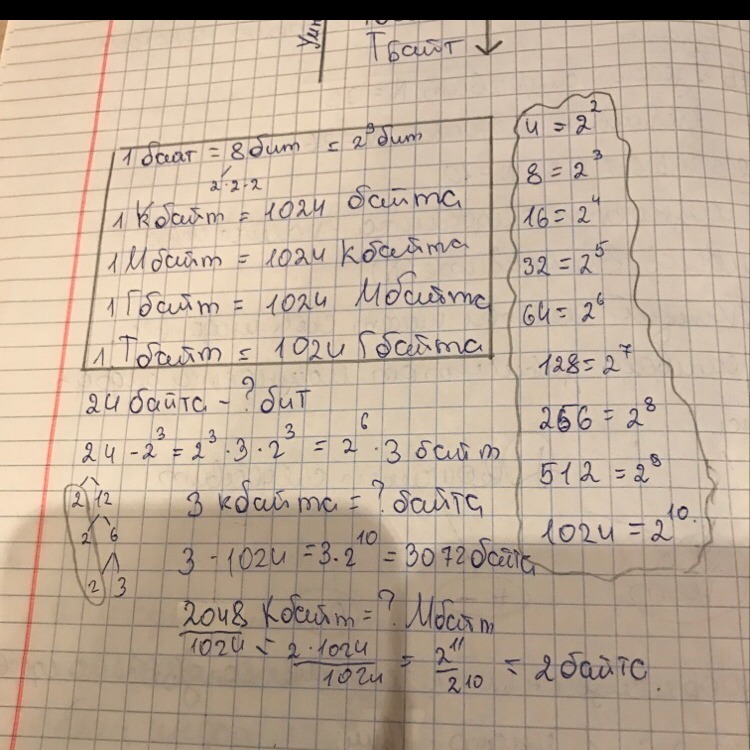 Тбайт
1 байт = 8 бит = 2³ бит
2·2·2
1 Кбайт = 1024 байта
1 Мбайт = 1024 Кбайта
1 Гбайт = 1024 Мбайта
1 Тбайт = 1024 Гбайта
4 = 2²
8 = 2³
16 = 2⁴
32 = 2⁵
64 = 2⁶
128 = 2⁷
256 = 2⁸
512 = 2⁹
1024 = 2¹⁰
24 байта - ? бит
24 - 2³ = 2³ · 3 · 2³ = 2⁶ · 3 байт
2 12
2 6
2 3
3 кбайта = ? байта
3 - 1024 = 3 · 2¹⁰ = 3072 байта
2048 Кбайт = ? Мбайт
1024 = 2 · 1024 / 1024 = 2¹¹ / 2¹⁰ = 2 байта.